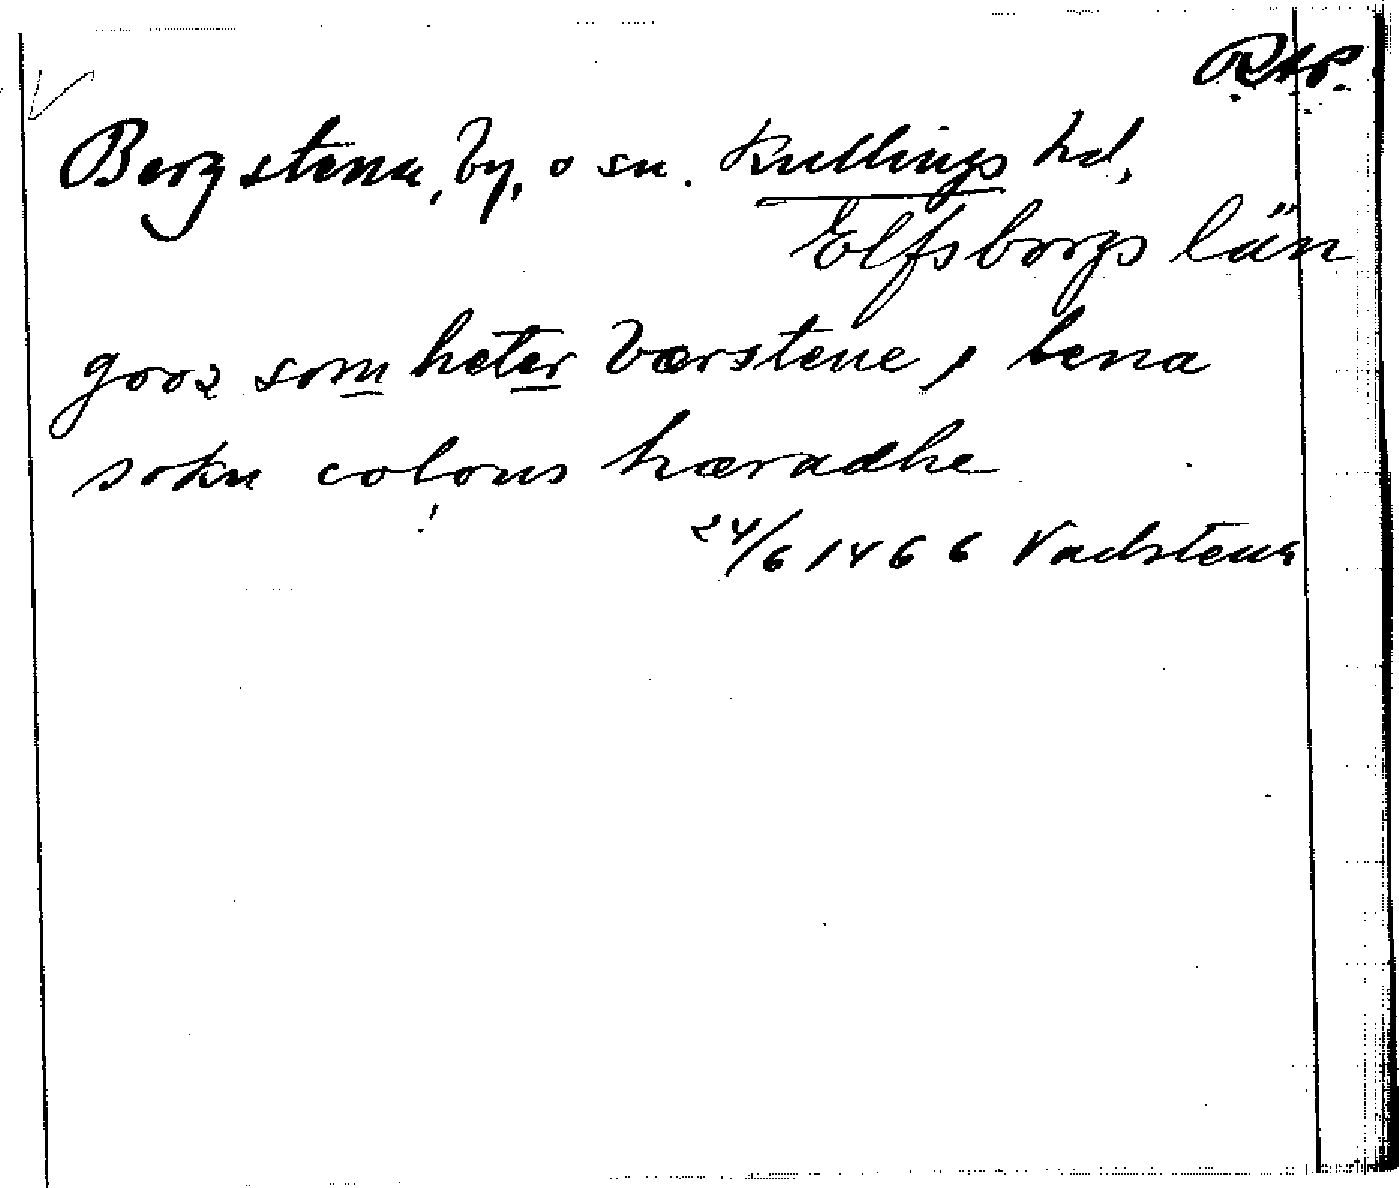 RAP.
Bergstena, by, o sn. Kullings hd,
Elfsborgs län
gooz som heter bærstene i tena
sokn colons hæradhe
!
24/6 1466 Vadstena